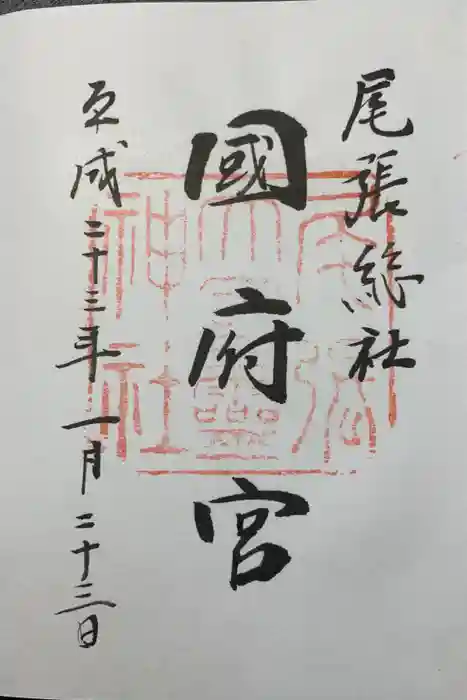 尾張総社
國府宮
平成二十三年一月二十三日
尾張
大國霊
神社